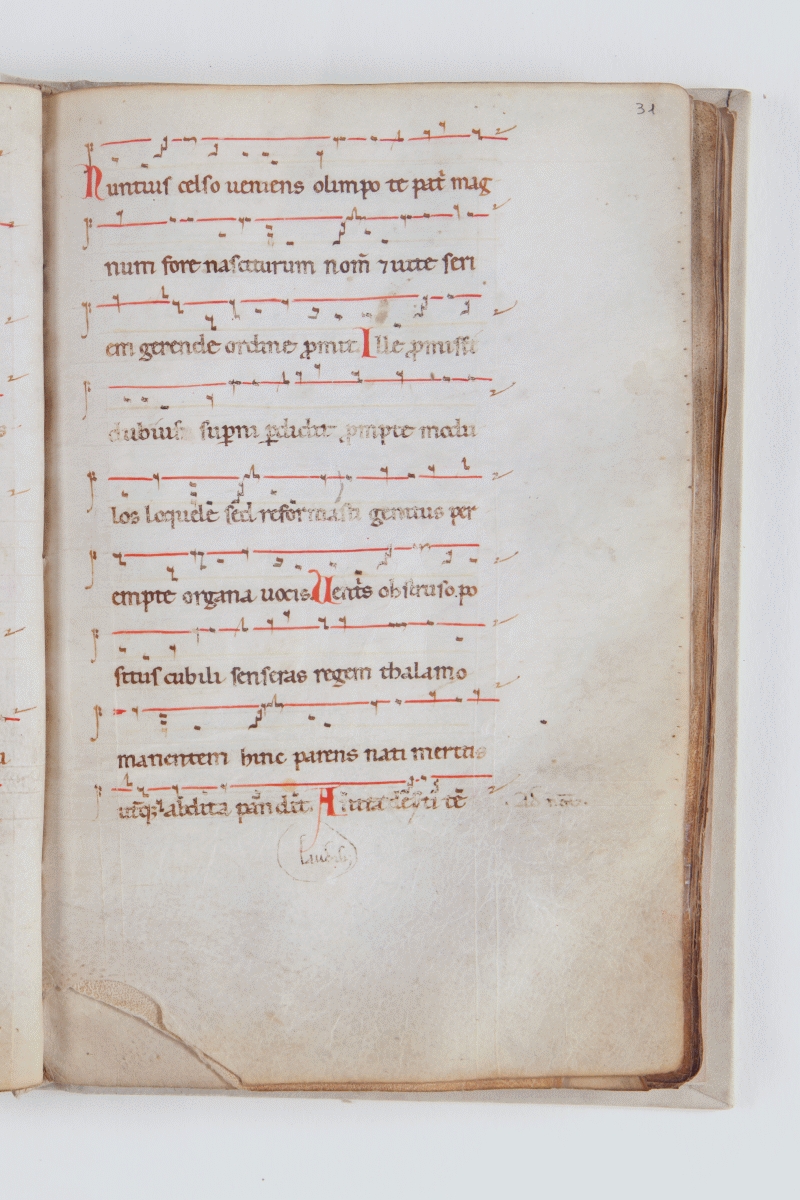 31
Nuntius celso ueniens olimpo te pat̃ mag
num fore nasciturum nom̃ ⁊ uite seri
em gerende ordine ꝓmit Ille ꝓmissi
dubius sup̃ni ꝑdidit ꝓmpte modu
los loquelẽ sed reformasti genitus per
empte organa uocis Uent̃s obstruso po
situs cubili senseras regem thalamo
manentem hinc parens nati meritis
ut̃qꝫ abdita pandit